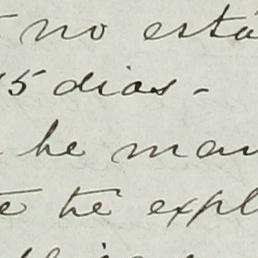 no está
15 dias -
he man
te hé expl